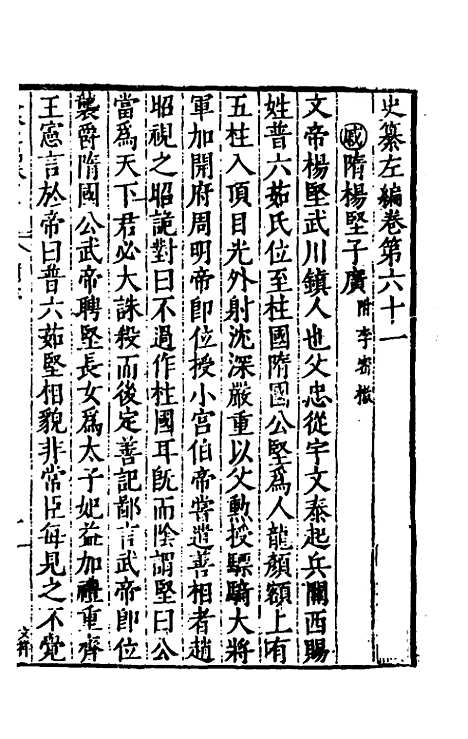 史纂左編卷第六十一
戚隋楊堅子廣附李密檄
文帝楊堅武川鎮人也父忠從宇文泰起兵關西賜
姓普六茹氏位至柱國隋國公堅為人龍顏額上有
五柱入頂目光外射沈深嚴重以父勲授驃騎大將
軍加開府周明帝即位授小宫伯帝嘗遣善相者趙
昭視之昭詭對曰不過作柱國耳既而陰謂堅曰公
當為天下君必大誅殺而後定善記鄙言武帝即位
襲爵隋國公武帝聘堅長女為太子妃益加禮重齊
王憲言於帝曰普六茹堅相貌非常臣每見之不覺